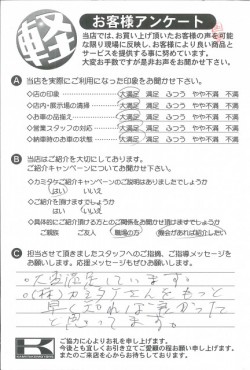 軽
お客様アンケート
当店では、お買い上げ頂いたお客様の声を可能
な限り現場に反映し、お客様により良い商品と
サービスを提供する事に努めています。
大変お手数ですが是非お声をお聞かせ下さい。
A 当店を実際にご利用になった印象をお聞かせ下さい。
○店の印象 大満足 満足 ふつう やや不満 不満
○店内・展示場の清掃 大満足 満足 ふつう やや不満 不満
○お車の品揃え 大満足 満足 ふつう やや不満 不満
○営業スタッフの対応 大満足 満足 ふつう やや不満 不満
○納車時のお車の状態 大満足 満足 ふつう やや不満 不満
B 当店はご紹介を大切にしております。
ご紹介キャンペーンについてお聞かせ下さい。
○カミタケご紹介キャンペーンのご説明はありましたでしょうか
はい いいえ
○ご紹介を頂けますでしょうか
はい いいえ
○具体的にご紹介頂ける方とのご関係をお聞かせ頂けますでしょうか
ご親族 ご友人 職場の方 機会があれば紹介したい
C 担当させて頂きましたスタッフへのご指摘、ご指導メッセージを
お願いします。応援メッセージもぜひお願いします。
。大変満足しています。
。(株)カミタケさんをもっと
早く知れば良かった
と思ってます。
K
ご協力に心よりお礼を申し上げます。
今後とも宜しくお引き立てご愛顧の程お願い申し上げます。
またのご来店を心からお待ちしております。